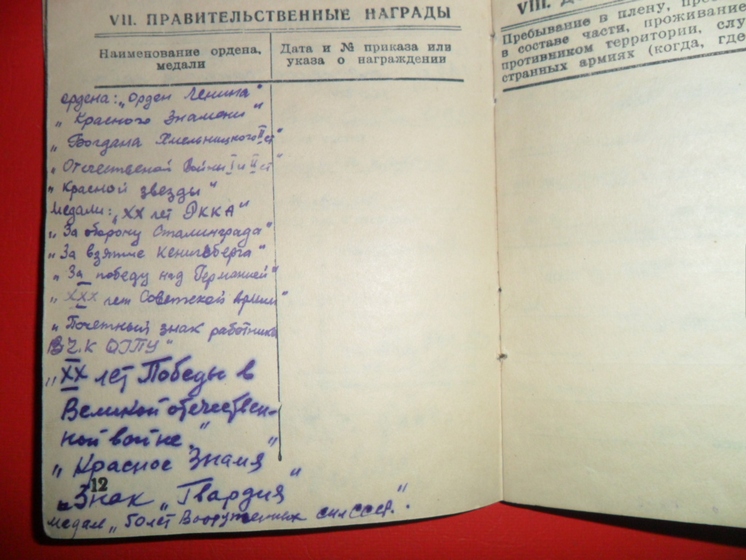 VII. ПРАВИТЕЛЬСТВЕННЫЕ НАГРАДЫ
Наименование ордена, медали
Дата и № приказа или указа о награждении
ордена: „Орден Ленина"
„Красного Знамени"
„Богдана Хмельницкого II ст"
„Отечественой войны I и II ст"
„Красной звезды"
медали: „XX лет РККА"
„За оборону Сталинграда"
„За взятие Кенигсберга"
„За победу над Германией"
„XXX лет Советской армии"
„Почетный знак работника
ВЧК ОГПУ"
„XX лет Победы в
Великой отечествен-
ной войне„"
„Красное Знамя"
12
„Знак „Гвардия"
медал „50 лет Вооруженных сил СССР".
VIII.
Пребывание в плену,
в составе части, проживание
противником территории,
странных армиях (когда, где